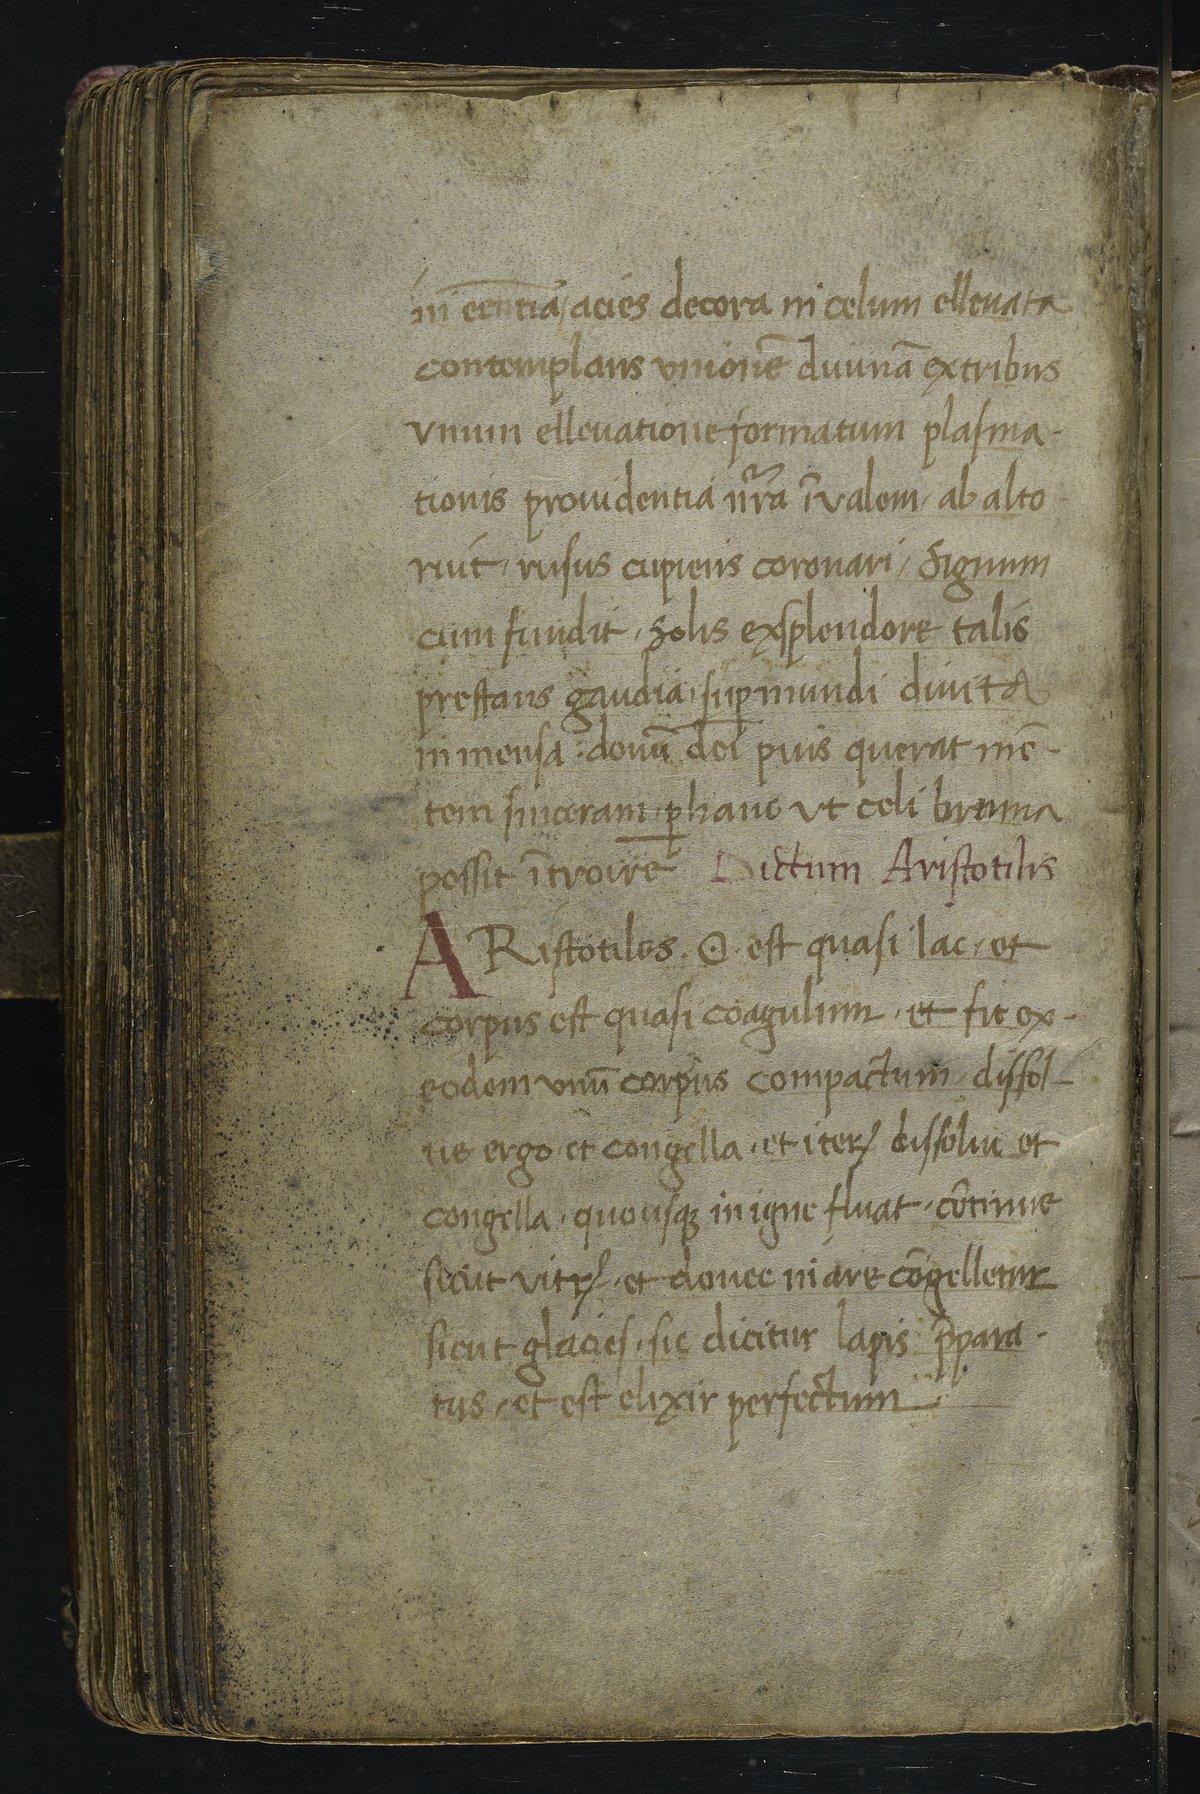 in eentia, acies decora in celum ellevata
contemplans unionē divinā ex tribus
vnum ellevatione formatum plasma-
tionis providentia nr̄a īvalem, ab alto
ruit, rusus cupiens coronari, signum
cum fundit, solis exsplendore talis
prestans gaudia, sup mundi divita
inmensa: donū dei puis querat mē-
tem sinceram, p hanc ut celi bruma
possit ītroire Dictum Aristotilis
ARistotiles. ☉ est quasi lac, et
corpus est quasi coagulum, et fit ex-
eodem unū corpus compactum, dissol-
ue ergo et congella, et iterꝝ dissolue et
congella, quousqꝫ in igne fluat, cōtinue
sicut vitꝝ, et donec in are cōgelletur
sicut glacies, sic dicitur lapis p̄para-
tus, et est elixir perfectum